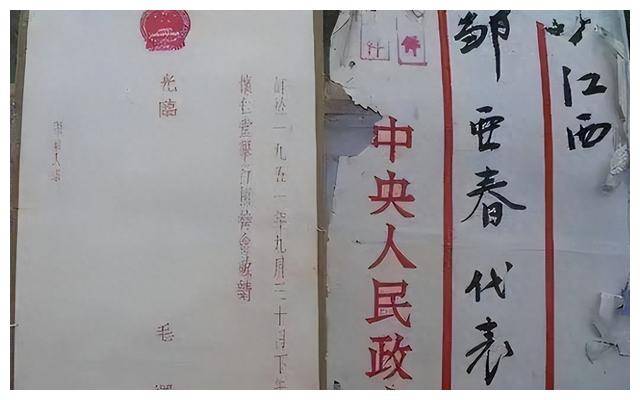 訂於一九五一年九月三十日下午
懷仁堂舉行國慶宴會敬請
光臨
毛
江西
鄒亚春代表
中央人民政
件